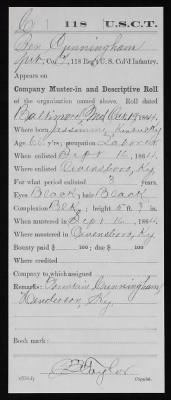 C | 118 | U.S.C.T.
Ben Cunningham
Pvt., Co. C, 118 Reg't U.S. Col'd Infantry.
Appears on
Company Muster-in and Descriptive Roll
of the organization named above. Roll dated
Baltimore, Md Oct 19, 1864.
Where born Kentucky
Age years; occupation Laborer
When enlisted Sept 16, 1864.
Where enlisted Owensboro, Ky
For what period enlisted 3 years.
Eyes Black; hair Black
Complexion Blk; height 5 ft. in.
When mustered in Sept 16, 1864.
Where mustered in Owensboro, Ky
Bounty paid $ 100; due $ 100
Where credited
Company to which assigned
Remarks: Cunningham
Henderson, Ky.
Book mark:
Taylor
Copyist.